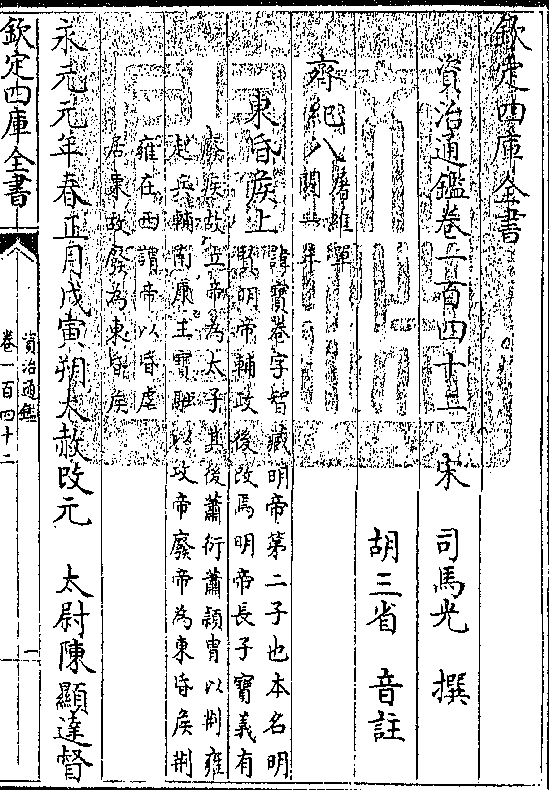 欽定四庫全書
資治通鑑卷一百四十二 宋 司馬光 撰
胡三省 音註
齊紀八
屠維單
閼一年
東昏侯上
諱寶卷字智藏明帝第二子也本名明
賢明帝輔政後改焉明帝長子寶義有
廢疾故立帝為太子其後蕭衍蕭穎胄以荆雍
起兵輔南康王寶融以攻帝廢帝為東昏侯荆
雍在西謂帝以昏虐
居東故廢為東昏侯
永元元年春正月戊寅朔大赦改元 太尉陳顯達督
欽定四庫全書
資治通鑑
卷一百四十二
一